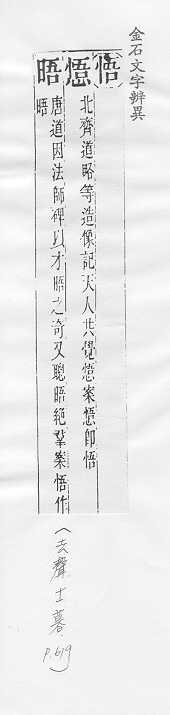 金石文字辨異
悟 晤
北齊道略等造像記天人共覺案即悟
唐道因法師碑以才晤之奇又聰晤絕羣案悟作
晤
(去聲十一暮.
p.619